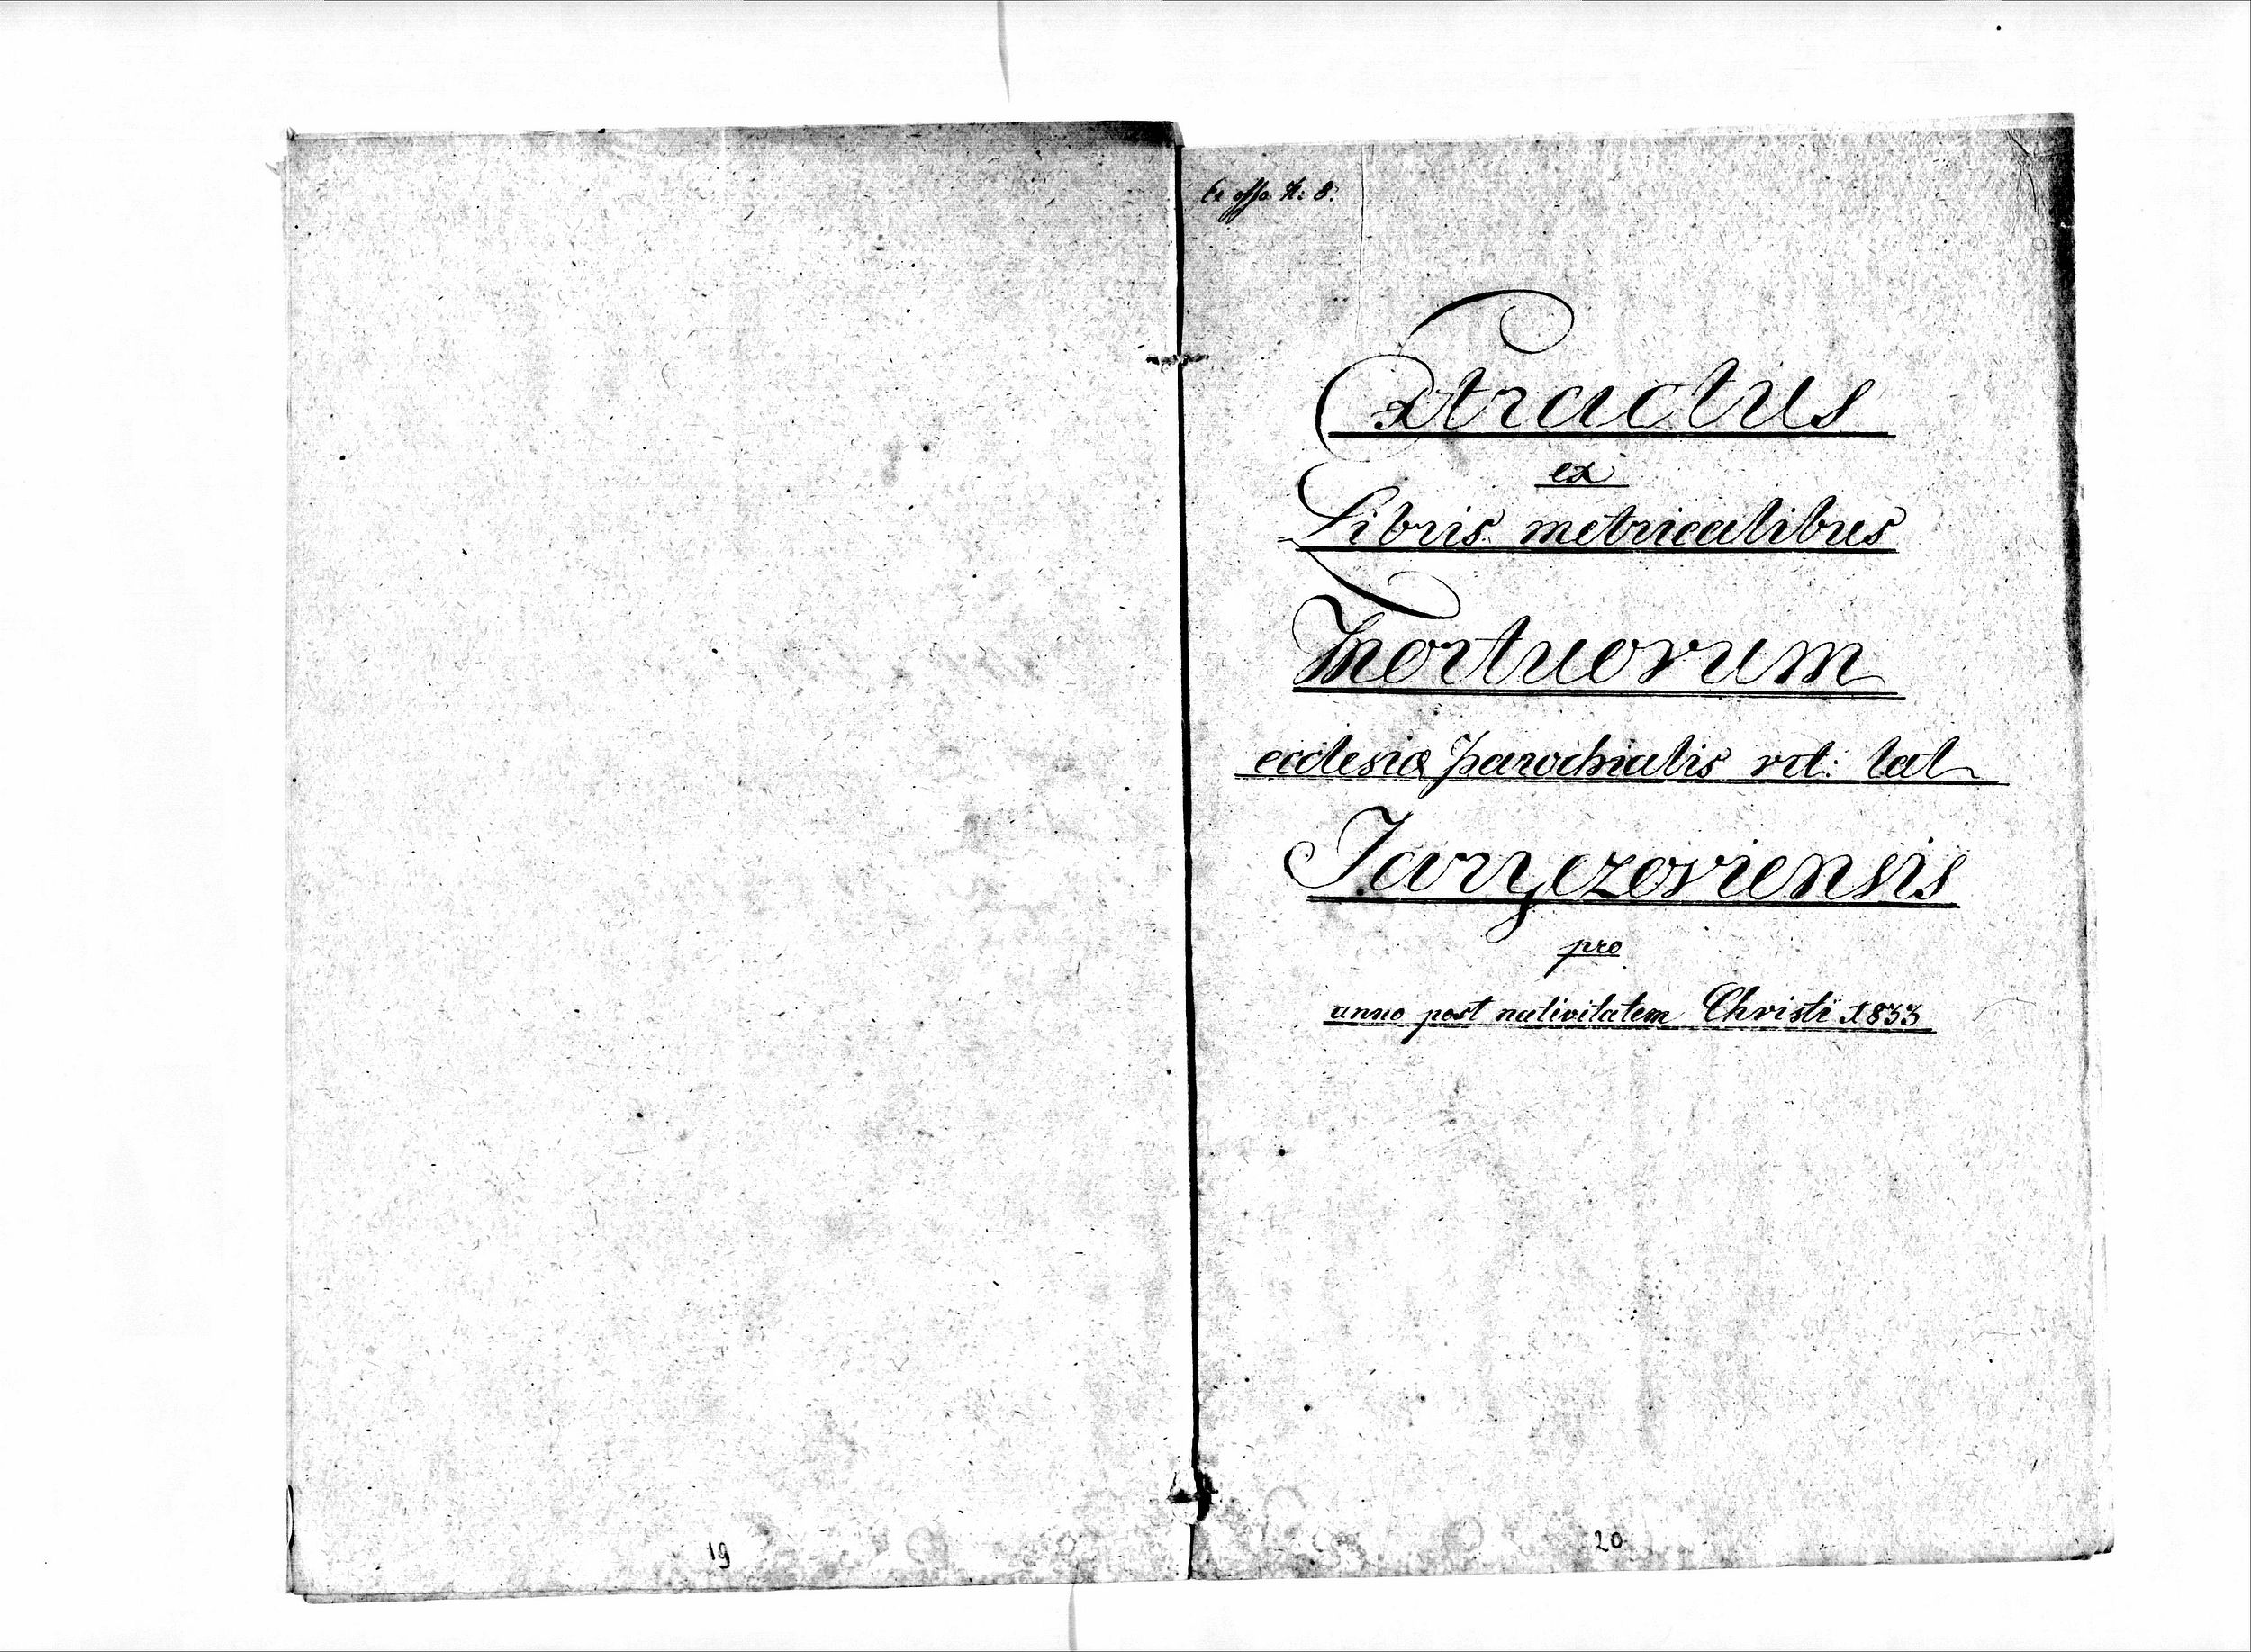 Ex offo N: 8.
Extractus
ex
Libris metricalibus
Mortuorum
ecclesiæ parochialis rit: lat
Jaryczoviensis
pro
anno post nativitatem Christi 1833
19
20